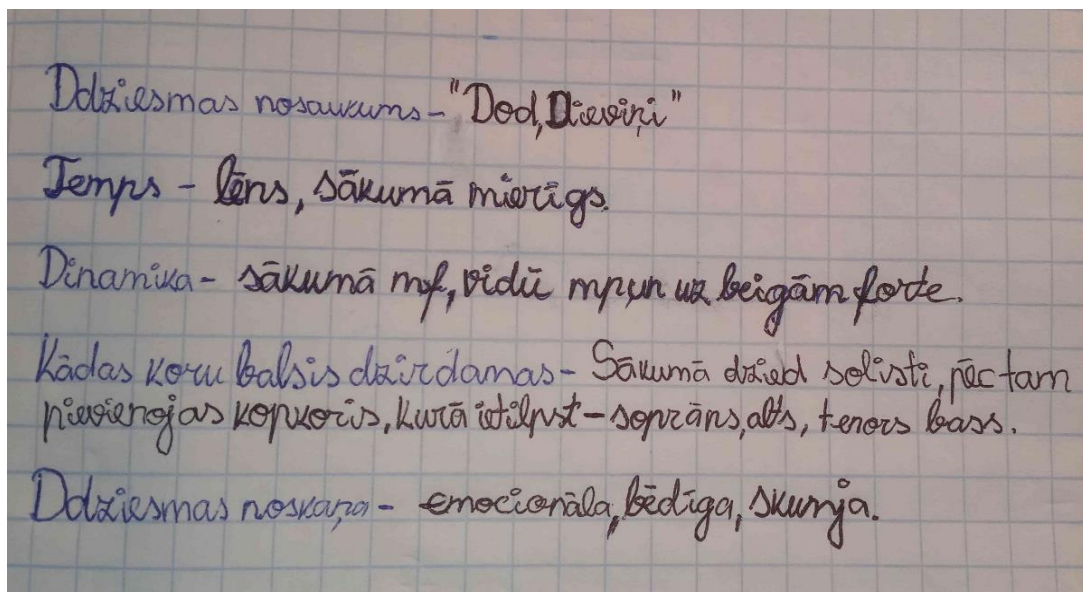 Ddziesmas nosaukums - "Dod, Dieviņi"
Temps - lēns, sākumā mierīgs.
Dinamika - sākumā mf, vidū mp, un uz beigām forte.
Kādas koru balsis dzirdamas - Sākumā dzied solisti, pēc tam
pievienojas kopkoris, kurā ietilpst - soprāns, alts, tenors bass.
Ddziesmas noskaņa - emocionāla, bēdīga, skumja.